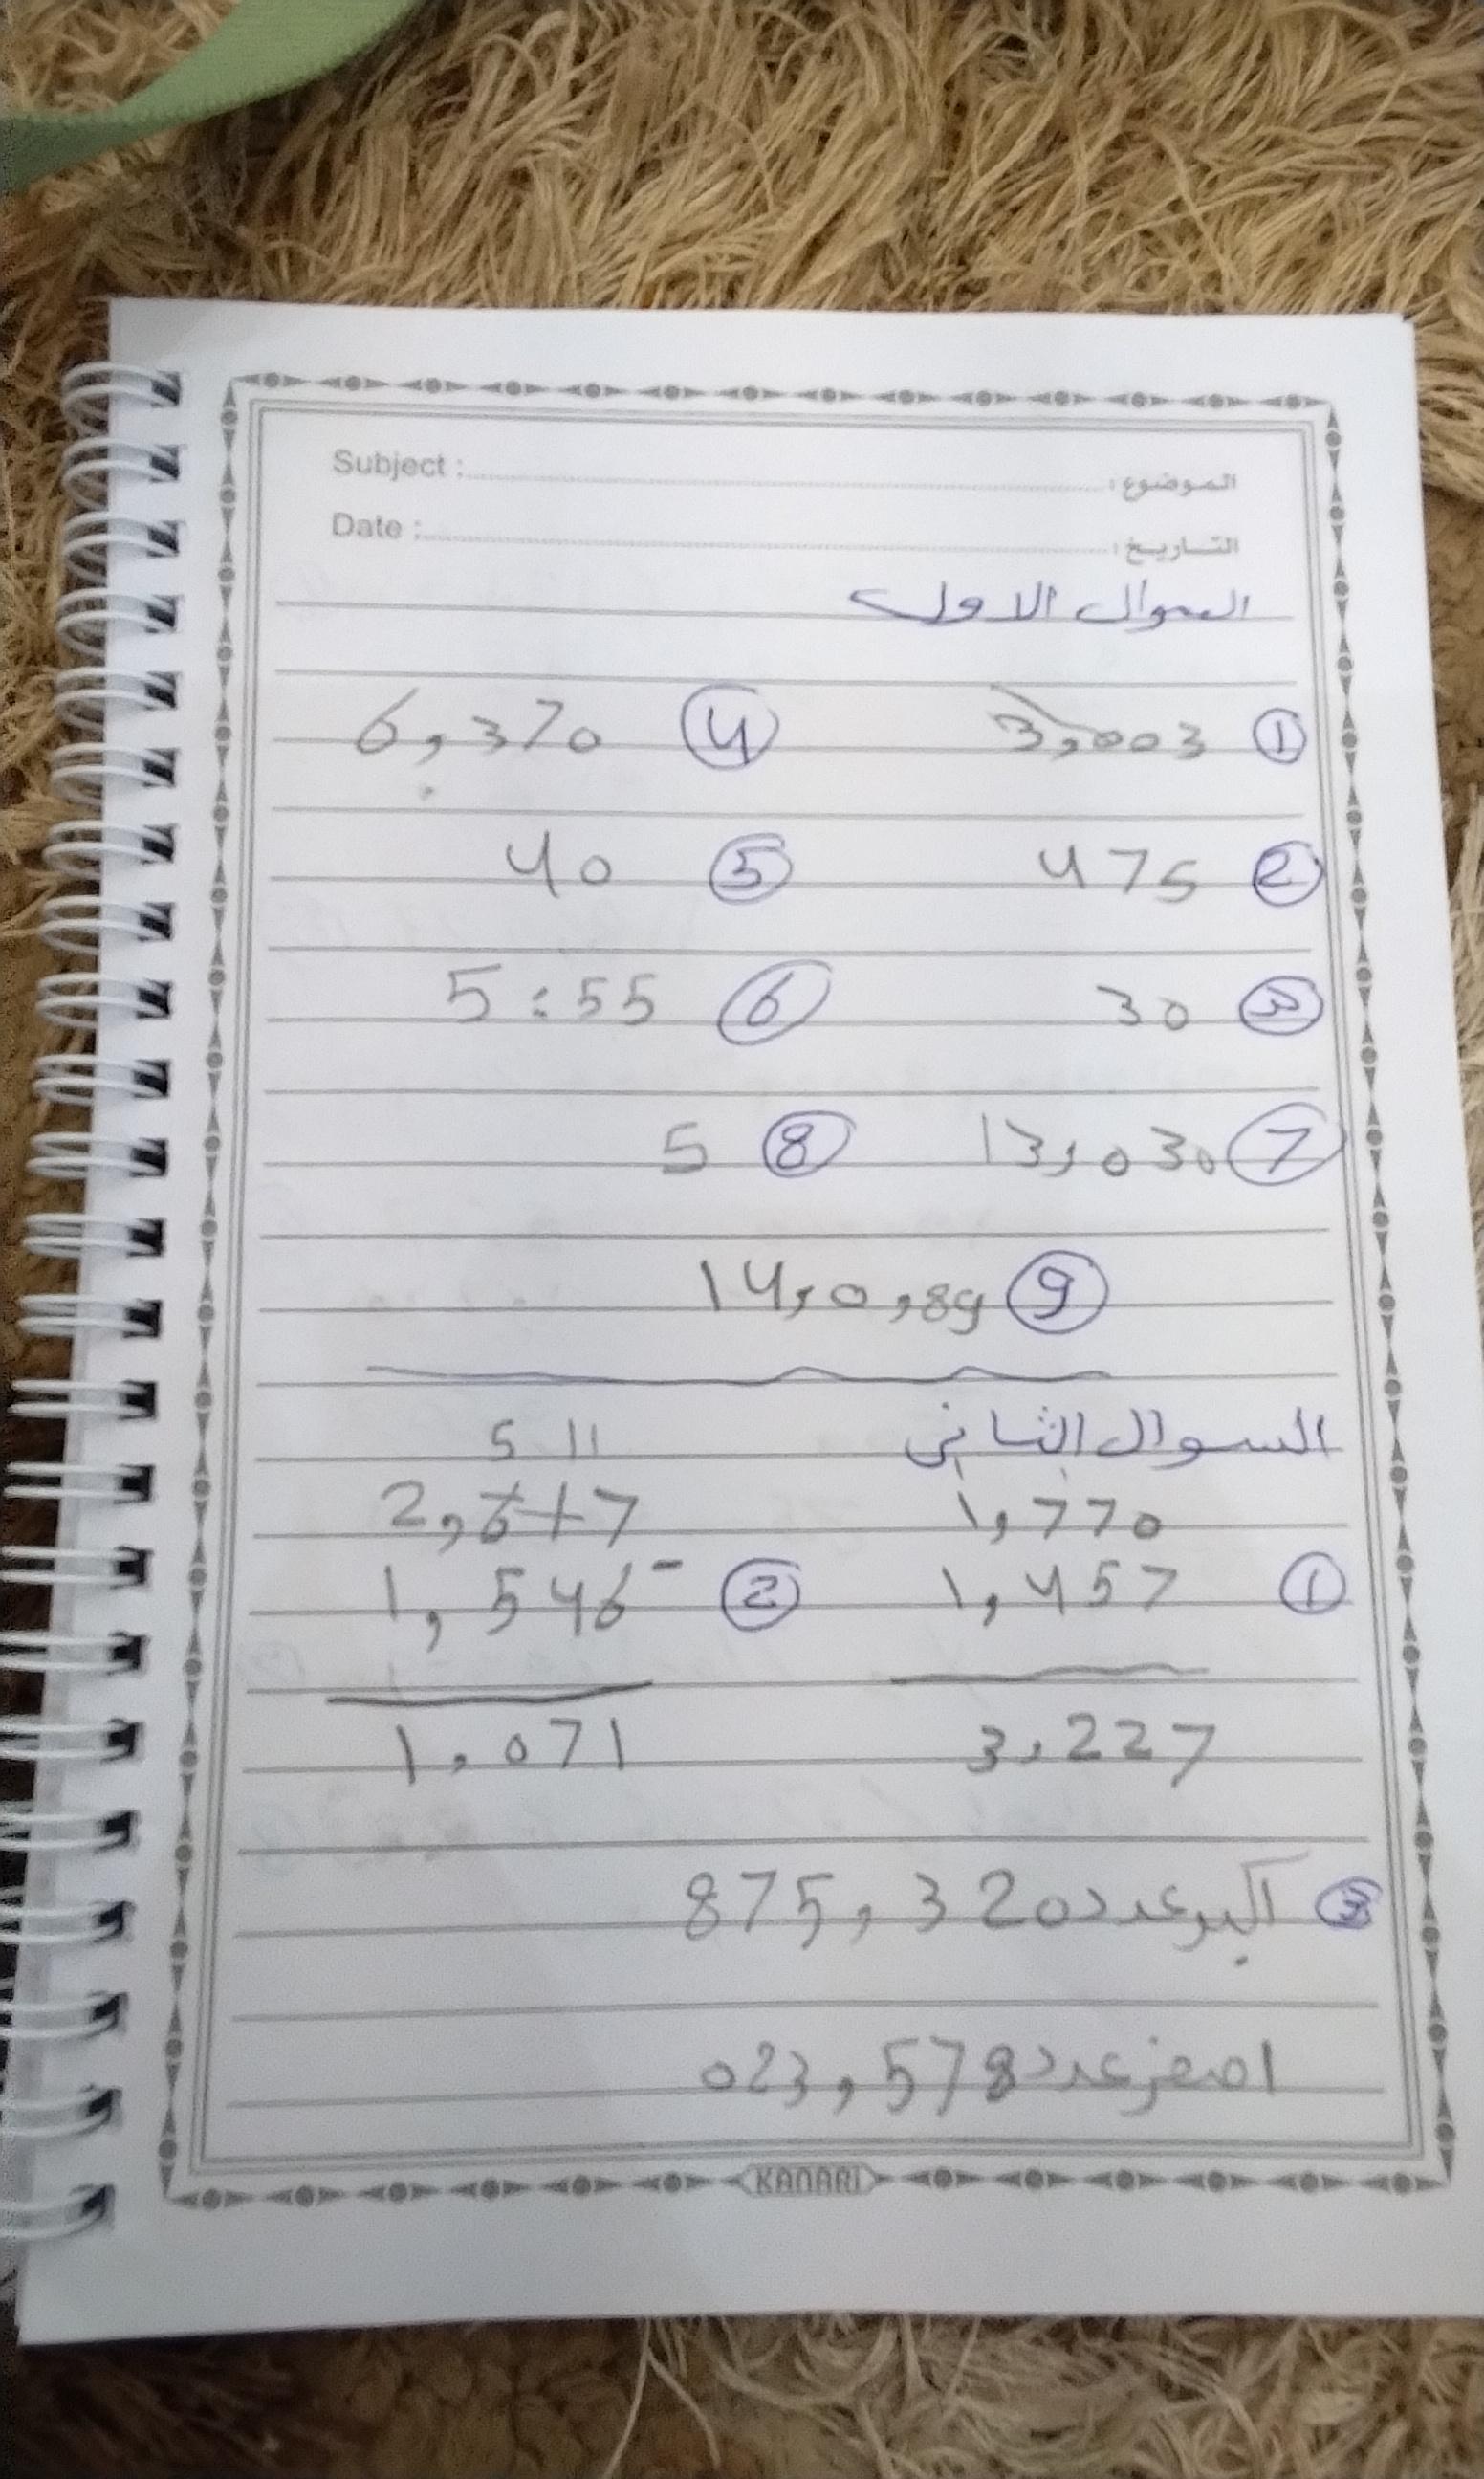 Subject : الموضوع :
Date : التاريخ :
السوال الاول
① 3,003 ④ 6,370
② 475 ⑤ 40
③ 30 ⑥ 5:55
⑦ 13,030 ⑧ 5
⑨ 14,0,89
السوال الثاني 5 11
1,770 2,617
① 1,457 ② 1,546 -
3,227 1,071
③ اكبر عدد 875,320
اصغر عدد 023,578
KANARI